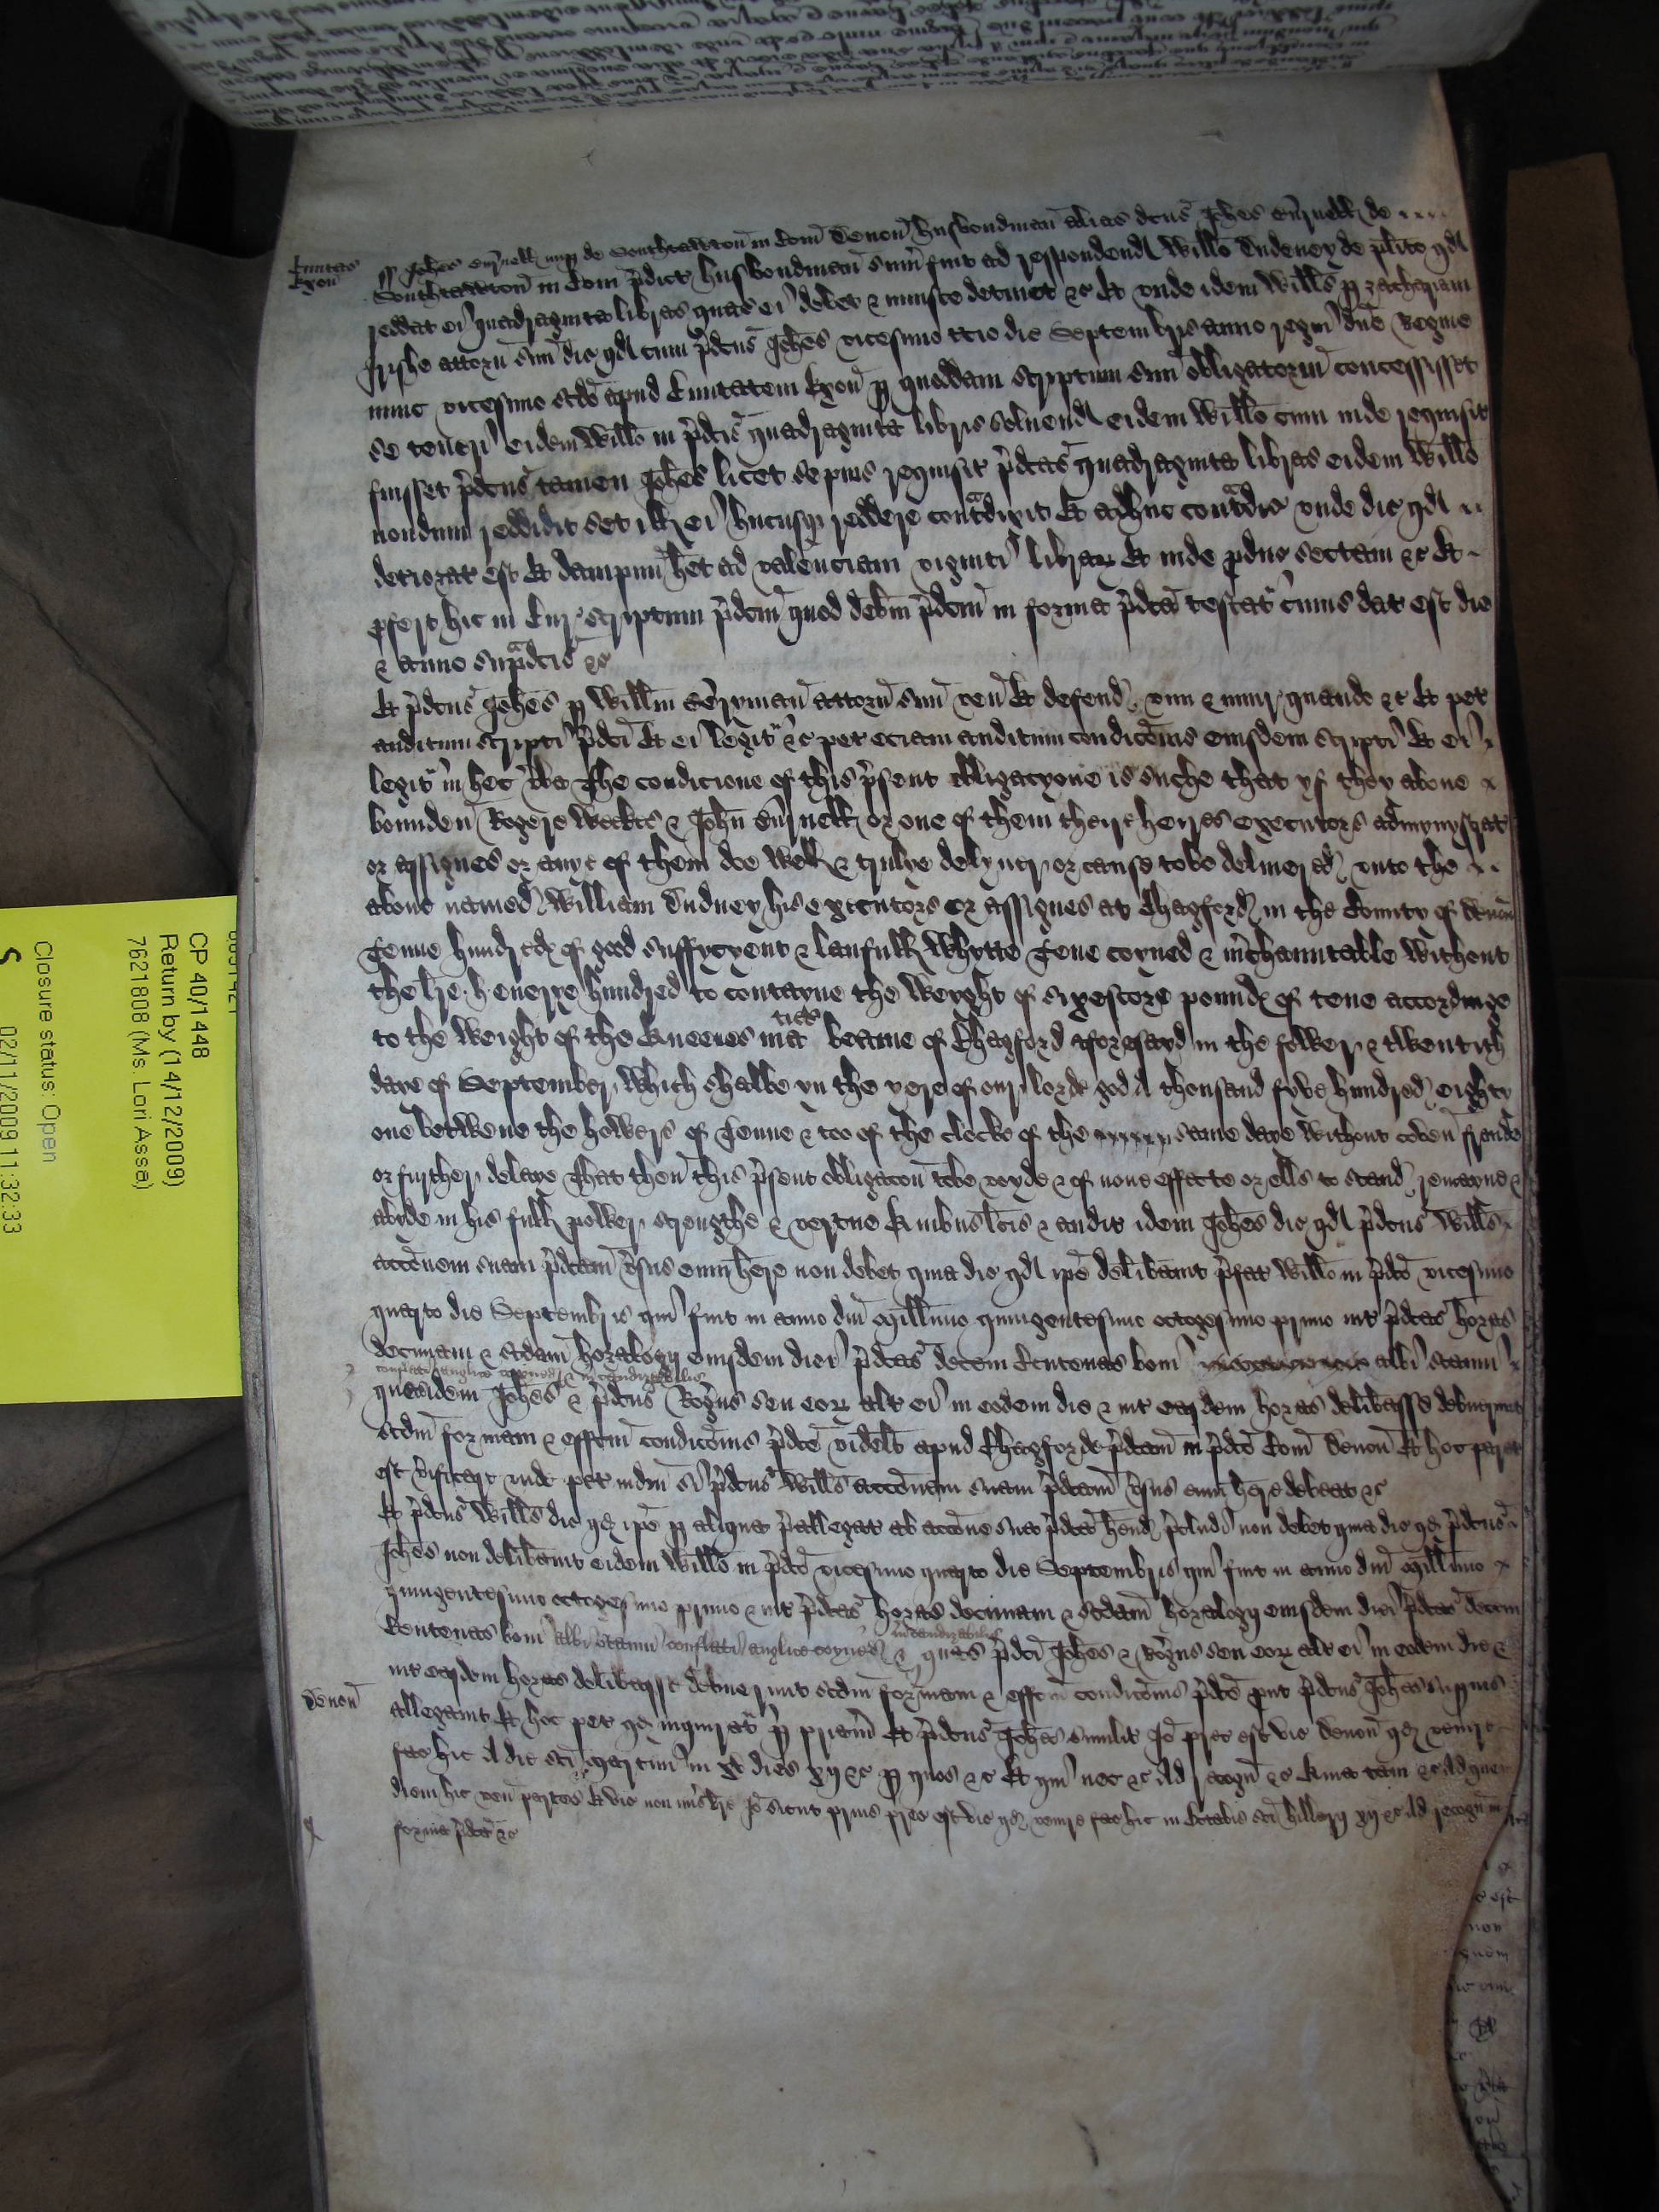 Civitas
Exon
Johes Curnell nup de Southtawton in Com Devon husbondman alias dcus Johes Curnell de
Southtawton in Com pdict husbondman sum fuit ad respondend Willo Dudeney de plito qd
reddat ei quadraginta libras quas ei debet & iniuste detinet &c Et unde idem Wills p Zachariam
Irishe attorn suu dic qd cum pdcus Johes vicesimo tcio die Septembris anno regni dne Regine
nunc vicesimo scdo apud Civitatem Exon p quoddam scriptum suu obligatoriu concessisset
se teneri eidem Willo in pdcis quadraginta libris solvend eidem Willo cum inde requisit
fuisset pdcus tamen Johes licet sepius requisit pdcas quadraginta libras eidem Willo
nondum reddidit set ill ei hucusq reddere contradixit Et adhuc contradic unde dic qd
deteriorat est Et dampnu het ad valenciam viginti librar Et inde pduc sectam &c Et
pfert hic in Cur scriptum pdcm quod debm pdcm in forma pdca testat cuius dat est die
& anno supradcis &c
Et pdcus Johes p Willm attorn suu ven Et defend vim & iniur quando &c Et pet
auditum scripti pdci Et ei legit &c pet eciam auditum condicois eiusdem scripti Et ei
legit in hec vba The condicione of this psent obligacyone is suche that yf they above
bounden Rogere Weekes & John Curnell or one of them theyre heyres executors admynystrat
or assignes or anye of them doe well & trulye delyver or cause to be delivered unto the
above named William Dudney his executors or assignes at Chagford in the County of Devon
Tenne hundred of good suffycyent & laufull Whytte Tene coyned & mchauntable without
the lre h everye hundred to contayne the weyght of sixescore pound of tene accordinge
to the weight of the Queenes ma
ties
beame of Chagford aforesayd in the fower & twentith
daye of September which shalbe yn the yere of our lorde god A thousand fyve hundred eighty
one betwene the howers of Tenne & too of the clocke of the same daye without coven fraude
or further delaye That then this psent obligacon tobe voyde & of none effecte or ells to stand remayne &
abyde in his full power strengthe & vertue Quibus lcis & audit idem Johes dic qd pdcus Wills
accoem suam pdcam vsus eum here non debet quia dic qd ipe delibavit pfat Willo in pdco vicesimo
quarto die Septembris qui fuit in anno dni Millimo quingentesimo octogesimo primo int pdcas horas
decimam & scdam horalogii eiusdem diei pdcas decem Centenas boni albi stanni
conflati anglice coyned & mcandizabilis
quas idem Johes & pdcus Rogus seu eor alt ei in eodem die & int easdem horas delibasse debuerunt
scdm formam & effcm condicois pdce videlt apud Chagforde pdcam in pdco Com Devon Et hoc parat
est vificare unde pet iudm si pdcus Wills accoem suam pdcam vsus eum here debeat &c
Et pdcus Wills dic qd ipe p aliqua pallegat ab accoe sua pdca hend pcludi non debet quia dic qd pdcus
Johes non delibavit eidem Willo in pdco vicesimo quarto die Septembris qui fuit in anno dni Millimo
quingentesimo octogesimo primo & int pdcas horas decimam & scdam horalogii eiusdem diei pdcas decem
Centenas boni albi stanni conflati anglice coyned &
mcandizabilis
quas pdci Johes & Rogus seu eor alt ei in eodem die &
int easdem horas delibasse debuerunt scdm formam & effcm condicois pdce put pdcus Johes supius
Devon
allegavit Et hoc pet qd inquirat p priam Et pdcus Johes similit Io prec est vic Devon qd venire
fac hic A die sci Martini in xv dies xij &c p quos &c Et qui nec &c Ad recogn &c Quia tam &c Ad quem
diem hic ven partes Et vic non mis bre Io sicut prius prec est vic qd venire fac hic in Octabis sci hillarij xij &c Ad recogn in
forma pdca &c
CP 40/1448
Return by (14/12/2009)
7621808 (Ms. Lori Assa)
Closure status: Open
02/11/2009 11:32:33
S